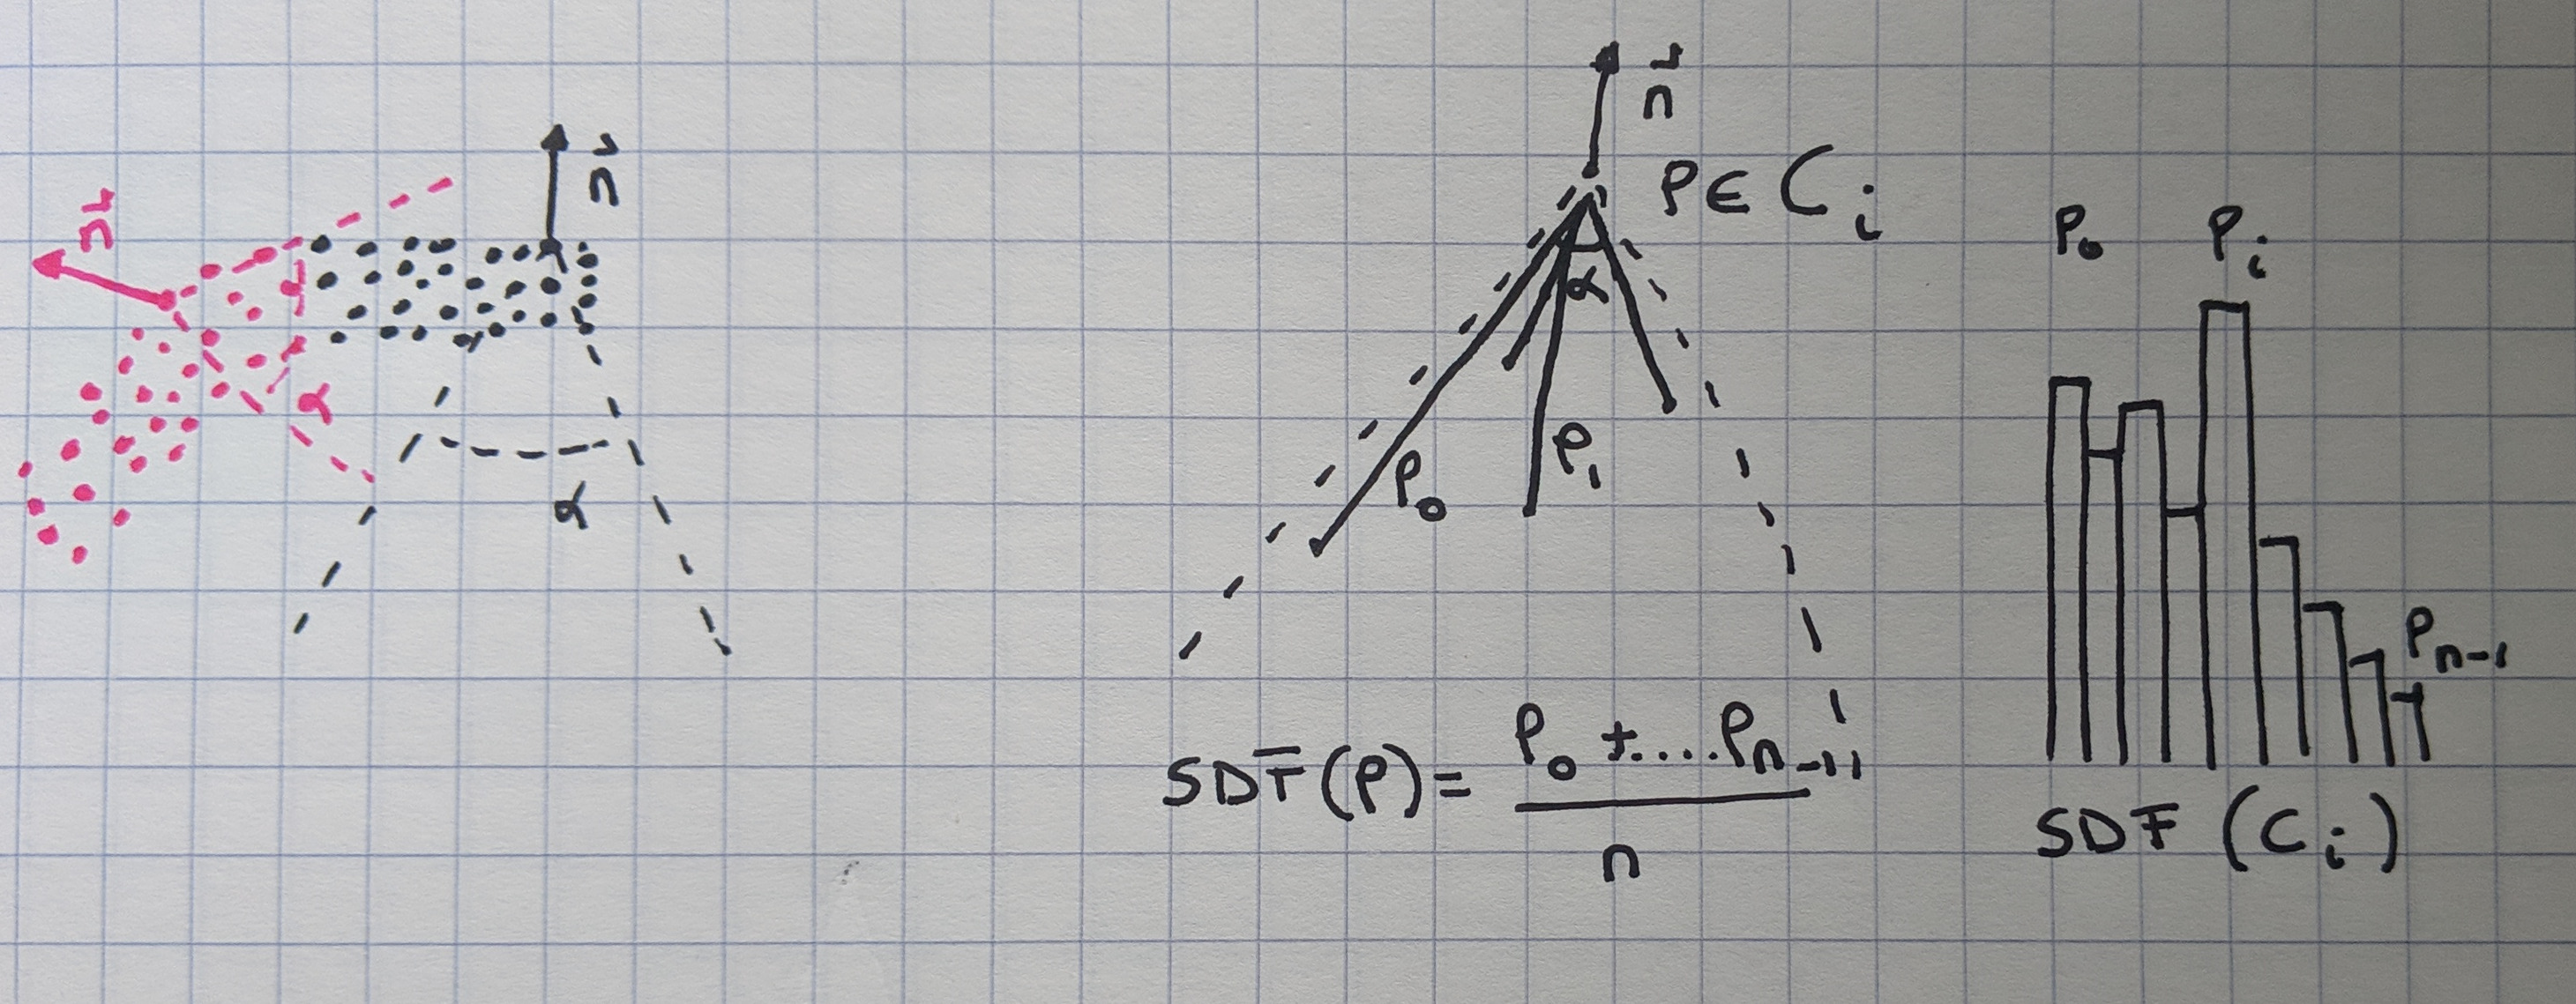 n⃗
n⃗
α
α
n⃗
P ∈ C i
α
P0
P1
SDF(P) = P0 + .... Pn-1
n
P0 Pi
Pn-1
SDF (Ci)